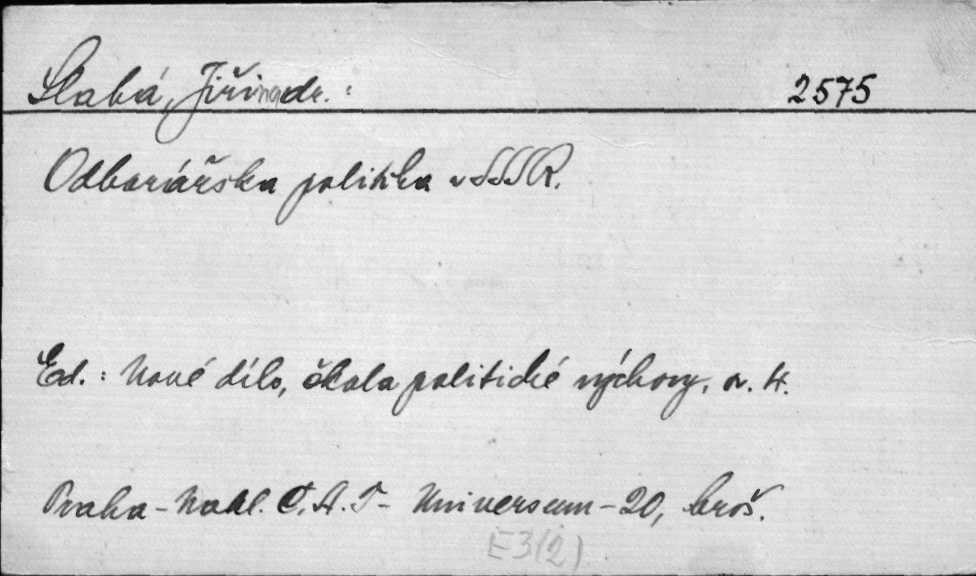 Slabá, Jiřina dr. :
2575
Odborářska politika v SSSR.
Ed. : Nové dílo, škola politické výchovy, sv. 4.
Praha - Nakl. Č. A. T - Universum - 20, brož.
E3(2)